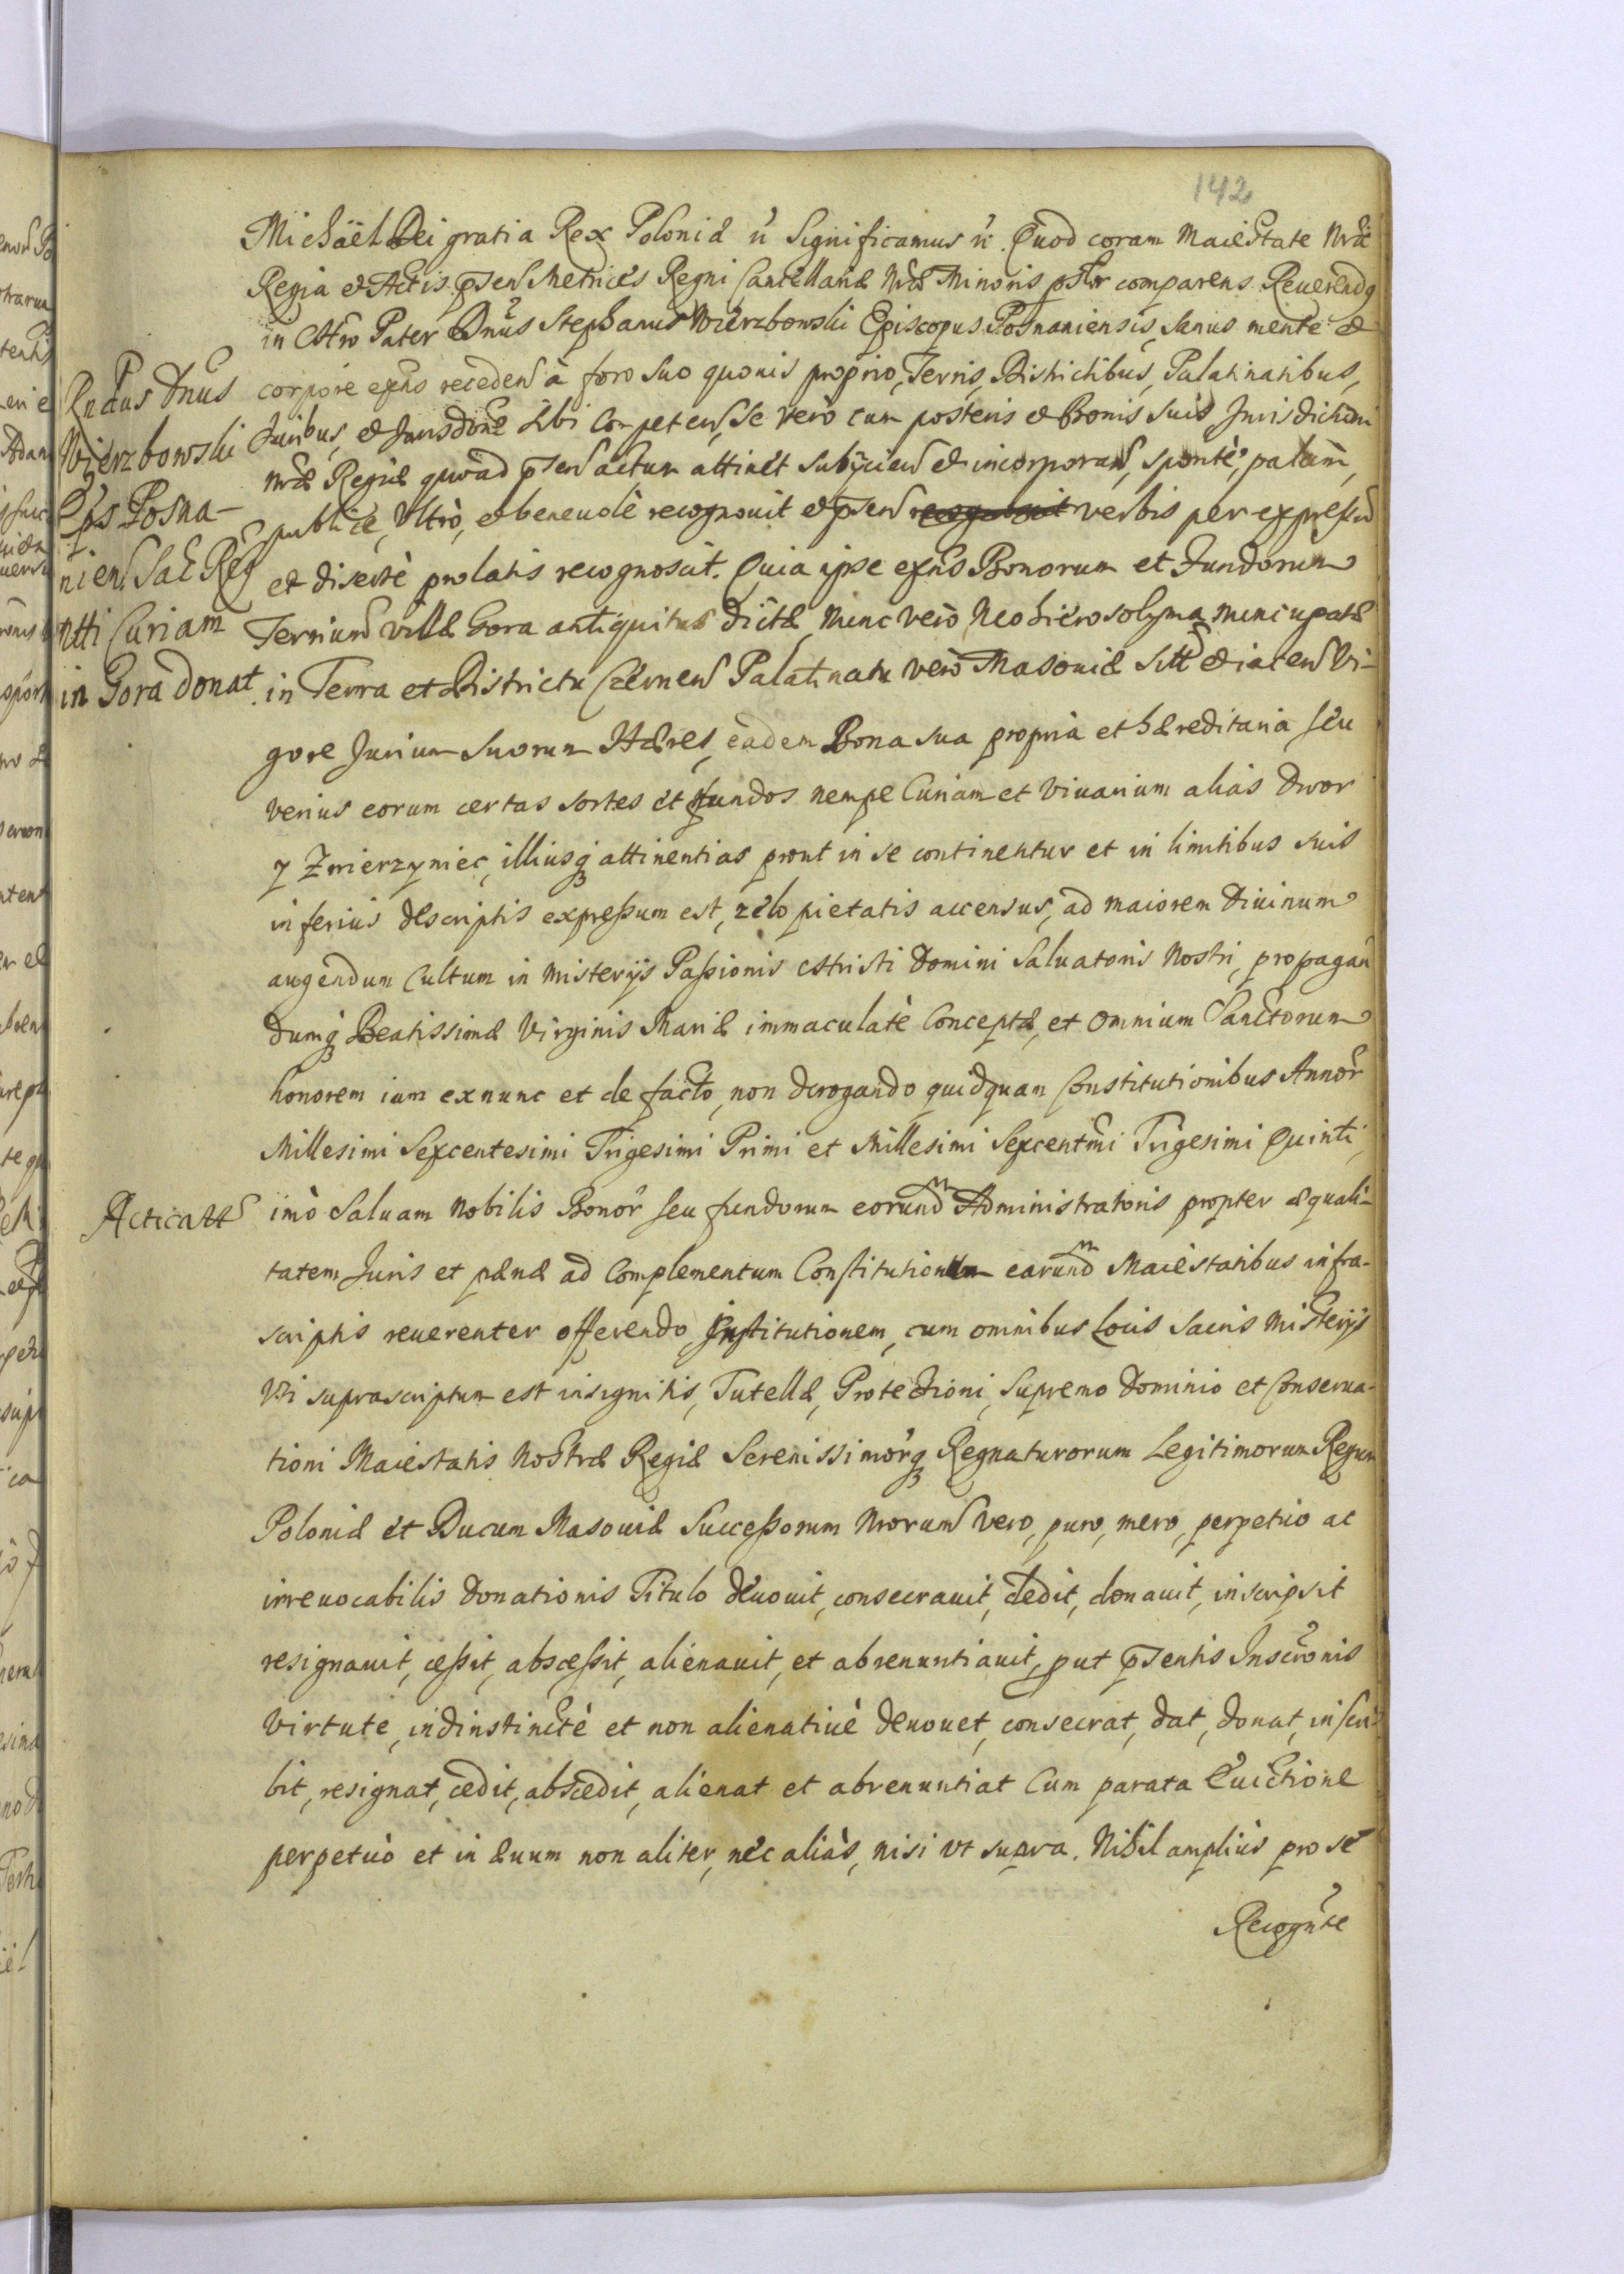 142
Michäel Dei gratia Rex Poloniæ &c Significamus &c. Quod coram Maiestate Nrã
Regia et Actis pñten Metrices Regni Cancellariæ Nræ Minoris psltr comparens Reuerendq
in Chro Pater Dnus Stephanus Wierzbowski Episcopus Posnaniensis, sanus mente et
corpore exñs recedens à foro suo quouis proprio, Terris, Districtibus, Palatinatibus,
Iuribus, et Jurisdõne sibi Competen, Se verò cum posteris et Bonis suis Jurisdictioni
Nræ Regiæ quoad pñsen actum attinet subÿcien et incorporans, spontè, palàm,
publicè, Vltrò, et beneuolè recognouit et pñsen recognouit verbis per expressũ
et disertè prolatis recognoscit. Quia ipse exñs Bonorum et Fundorum
Terrium villæ Gora antiquitus dictæ, Nunc verò Neohierosolyma nuncupatæ
in Terra et Districtu Czernen Palatinatu verò Masouiæ sitt et iacen Vi-
gore Jurium Suorum Hæres, eadem Bona sua propria et hæreditaria, seu
verius eorum certas sortes et fundos nempe Curiam et Viuarium alias Dwor
y Zwierzyniec, illiusq attinentias prout in se continentur et in limitibus suis
inferius descriptis expressum est, zelo pietatis accensus, ad maiorem Diuinum
augendum Cultum in Misterÿs Passionis Christi Domini Saluatoris Nostri, propagan
dumq Beatissimæ Virginis Mariæ immaculatè Conceptæ, et Omnium Sanctorum
honorem iam exnunc et de facto, non derogando quidquam Constitutionibus Annor
Millesimi Sexcentesimi Trigesimi Primi et Millesimi Sexcentmi Trigesimi Quinti,
imò Saluam Nobilis Bonor seu fundorum eorundm Administratoris propter æquali-
tatem Juris et pænæ ad Complementum Constitutionum earundm Maiestatibus infra-
scriptis reuerenter offerendo Institutionem, cum omnibus Locis Sacris Misterÿs
Vti suprascriptum est insignitis, Tutellæ, Protectioni, Supremo Dominio et Conserua-
tioni Maiestatis Nostræ Regiæ Serenissimorq Regnaturorum Legitimorum Regum
Poloniæ et Ducum Masouiæ Successorum Nrorum Vero, puro, mero, perpetuo ac
irreuocabilis Donationis Titulo deuouit, consecrauit, dedit, donauit, inscripsit
resignauit, cessit, abscessit, alienauit, et abrenuntiauit, put pñsentis Inscrõnis
Virtute, indinstinctè et non alienatiuè deuouet, consecrat, dat, donat, inscri-
bit, resignat, cedit, abscedit, alienat et abrenuntiat Cum parata Euictione
perpetuò et in æuum non aliter, nec aliàs, nisi vt supra. Nihil amplius pro se
Recognte
Rndus Dnus
Wierzbowski
Eps Posna-
nien Sac Reg
Mtti Curiam
in Gora donat.
Acticatt